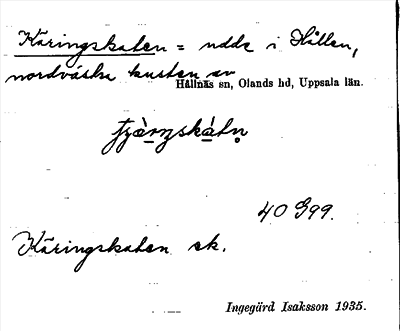 Käringskaten = udde i Hållen,
nordvästra kusten av
Hållnäs sn, Olands hd, Uppsala län.
40 G99.
Käringskaten ek.
Ingegärd Isaksson 1935.